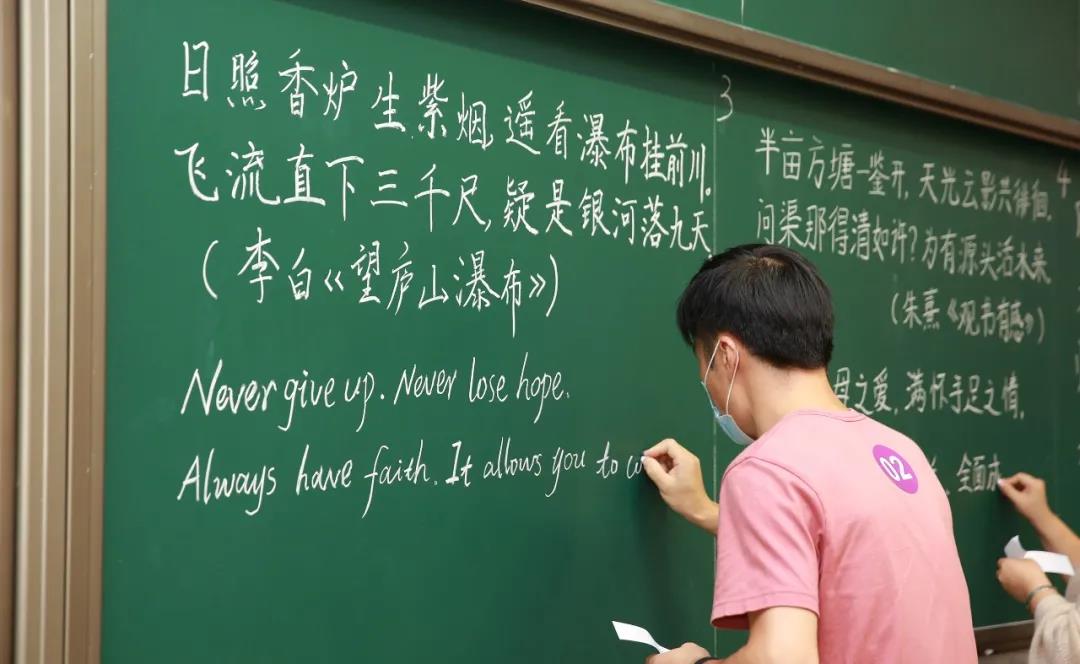 日照香炉生紫烟,遥看瀑布挂前川.
飞流直下三千尺,疑是银河落九天.
(李白《望庐山瀑布》)
Never give up. Never lose hope.
Always have faith. It allows you to
3
半亩方塘一鉴开,天光云影共徘徊.
问渠那得清如许?为有源头活水来
(朱熹《观书有感》)
母之爱,满怀手足之情,
全面
4
02